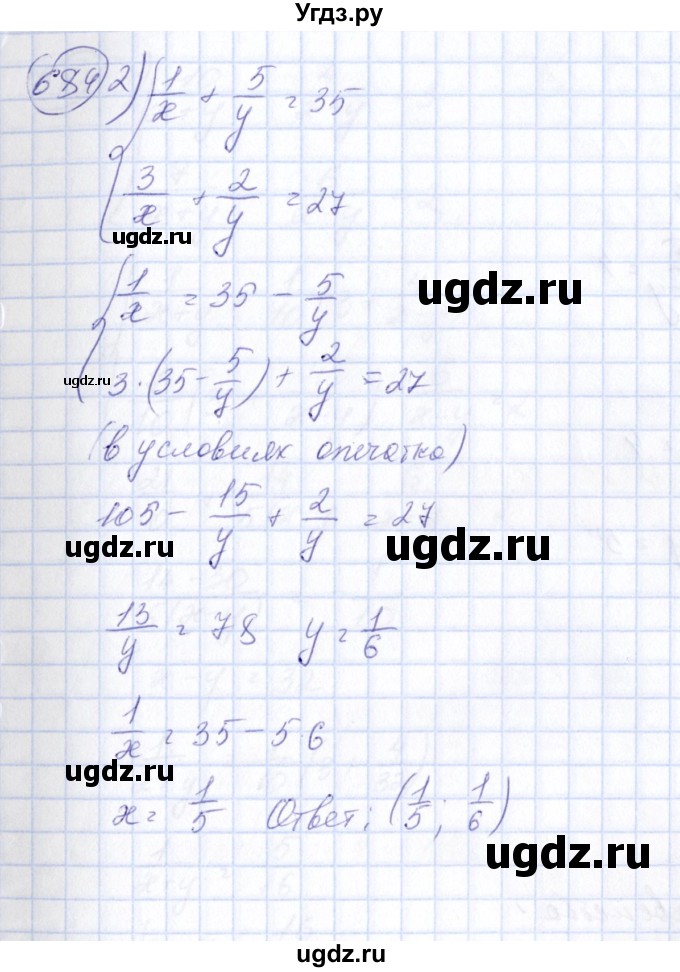 Угдз.ру
684 2) 1/x + 5/y = 35
3/x + 2/y = 27
ugdz.ru
1/x = 35 - 5/y
ugdz.ru
3·(35 - 5/y) + 2/y = 27
ugdz.ru
(в условиях опечатка)
105 - 15/y + 2/y = 27
ugdz.ru
ugdz.ru
13/y = 78 y = 1/6
ugdz.ru
1/x = 35 - 5·6
ugdz.ru
x = 1/5 Ответ: (1/5; 1/6)
ugdz.ru
ugdz.ru